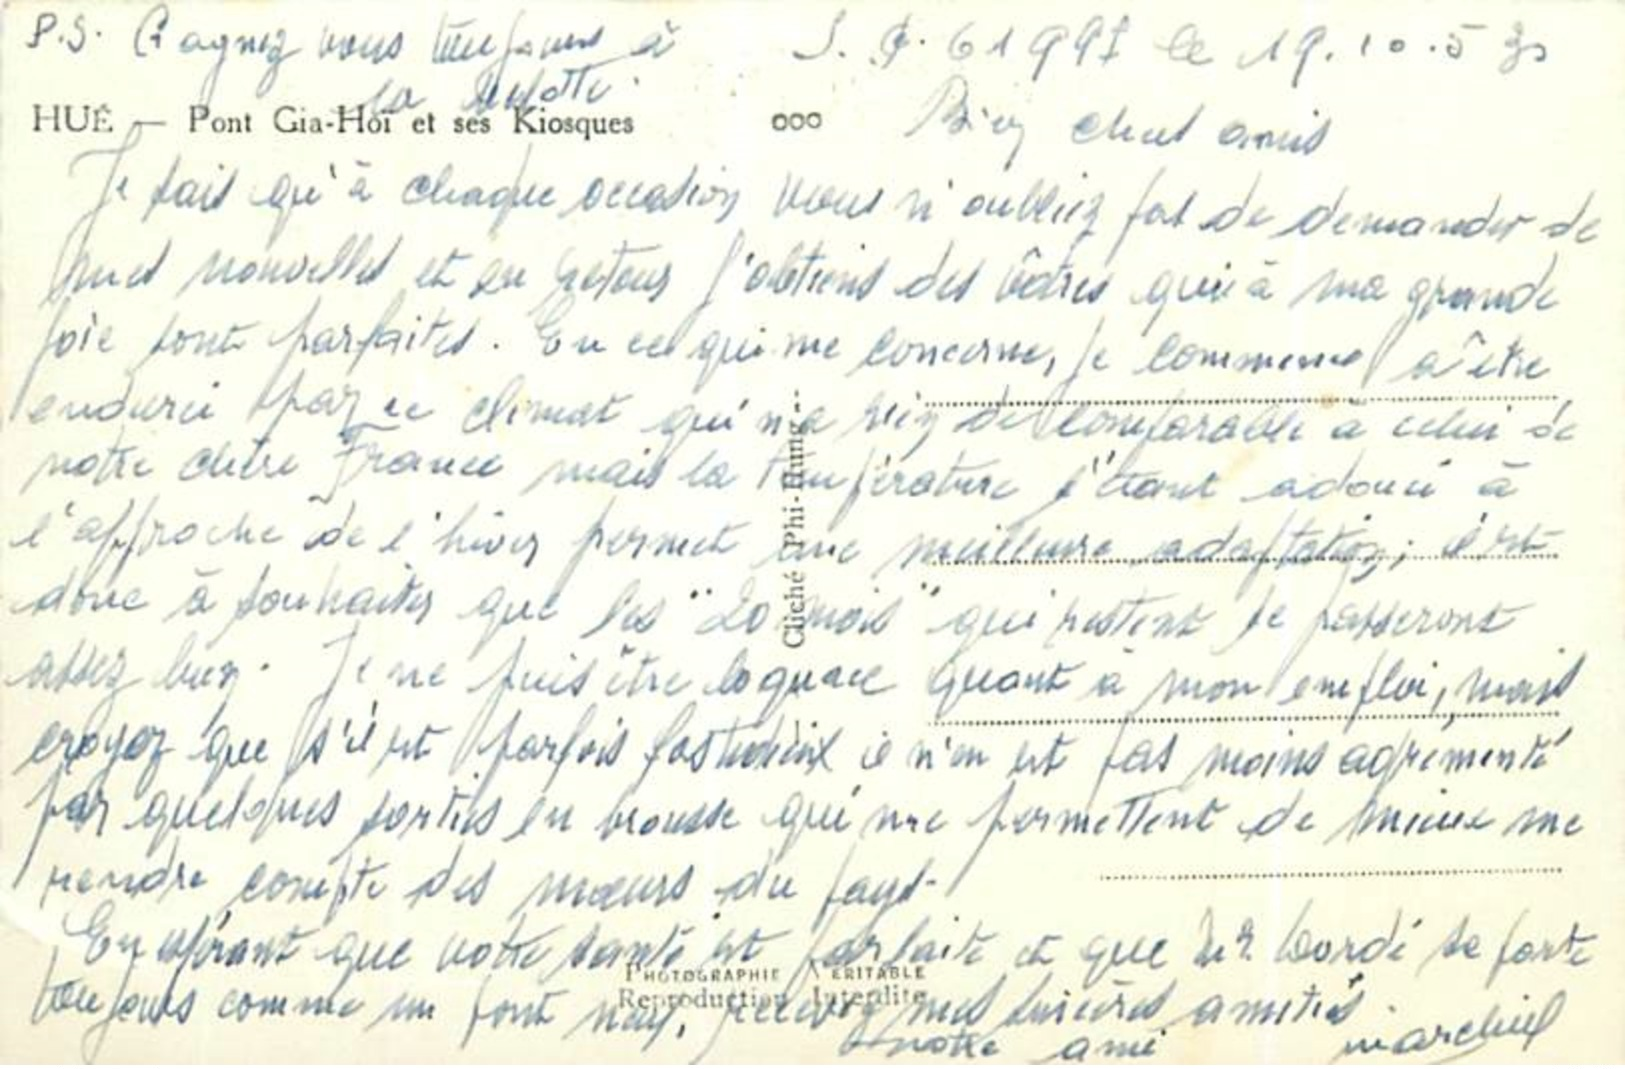 P.S. Gagnez vous toujours à
la belotte.
S.P. 61991 le 19.10.53
HUÊ — Pont Gia-Hoï et ses Kiosques
ooo
Bien chers amis
Je sais qu'à chaque occasion vous n'oubliez pas de demander de
mes nouvelles et en retour j'obtiens des vôtres qui à ma grande
joie sont parfaites. En ce qui me concerne, je commence à être
endurci par ce climat qui n'a rien de comparable à celui de
notre chère France mais la température s'étant adouci à
l'approche de l'hiver permet une meilleure adaptation; il est
donc à souhaiter que les "20 mois" qui restent se passeront
assez bien. Je ne puis être loquace quant à mon emploi, mais
croyez que s'il est parfois fastidieux il n'en est pas moins agrémenté
par quelques sorties en brousse qui me permettent de mieux me
rendre compte des mœurs du pays.
En espérant que votre santé est parfaite et que Bordé se porte
toujours comme un pont neuf, recevez mes sincères amitiés.
votre ami
Cliché Phi-Hung
PHOTOGRAPHIE VÉRITABLE
Reproduction Interdite